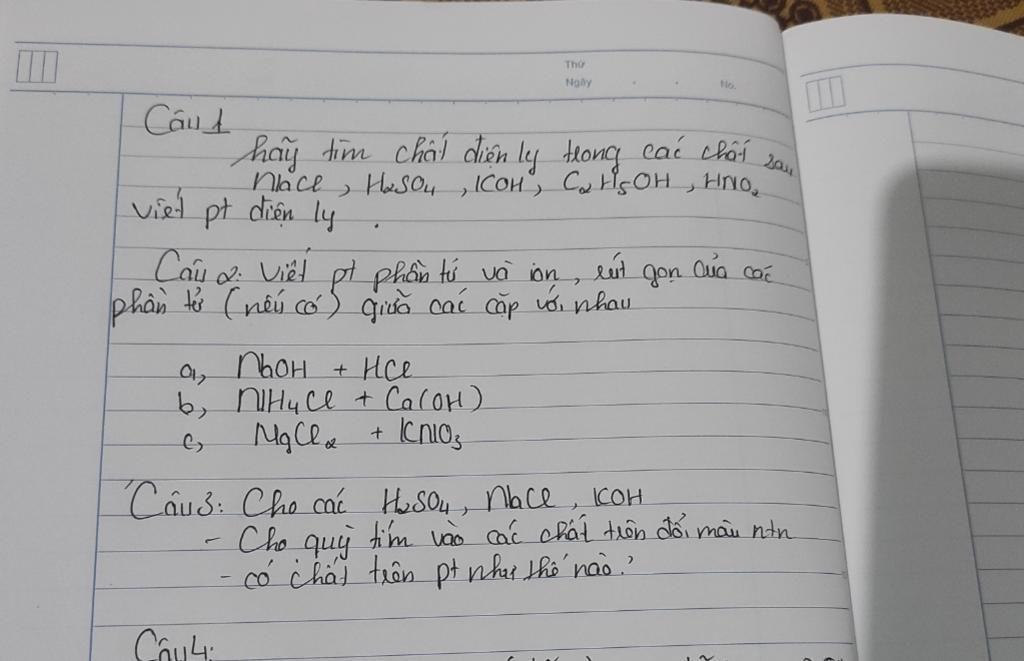 Thứ
Ngày . . No.
Câu 1
hãy tìm chất điện ly trong các chất sau
NaCl, H₂SO₄, KOH, C₂H₅OH, HNO₂
Viết pt điện ly.
Câu 2: Viết pt phân tử và ion, rút gọn của các
phân tử (nếu có) giữa các cặp với nhau
a, NaOH + HCl
b, NH₄Cl + Ca(OH)
c, MgCl₂ + KNO₃
Câu 3: Cho các H₂SO₄, NaCl, KOH
- Cho quỳ tím vào các chất trên đổi màu ntn
- có chất trên pt như thế nào?
Câu 4: